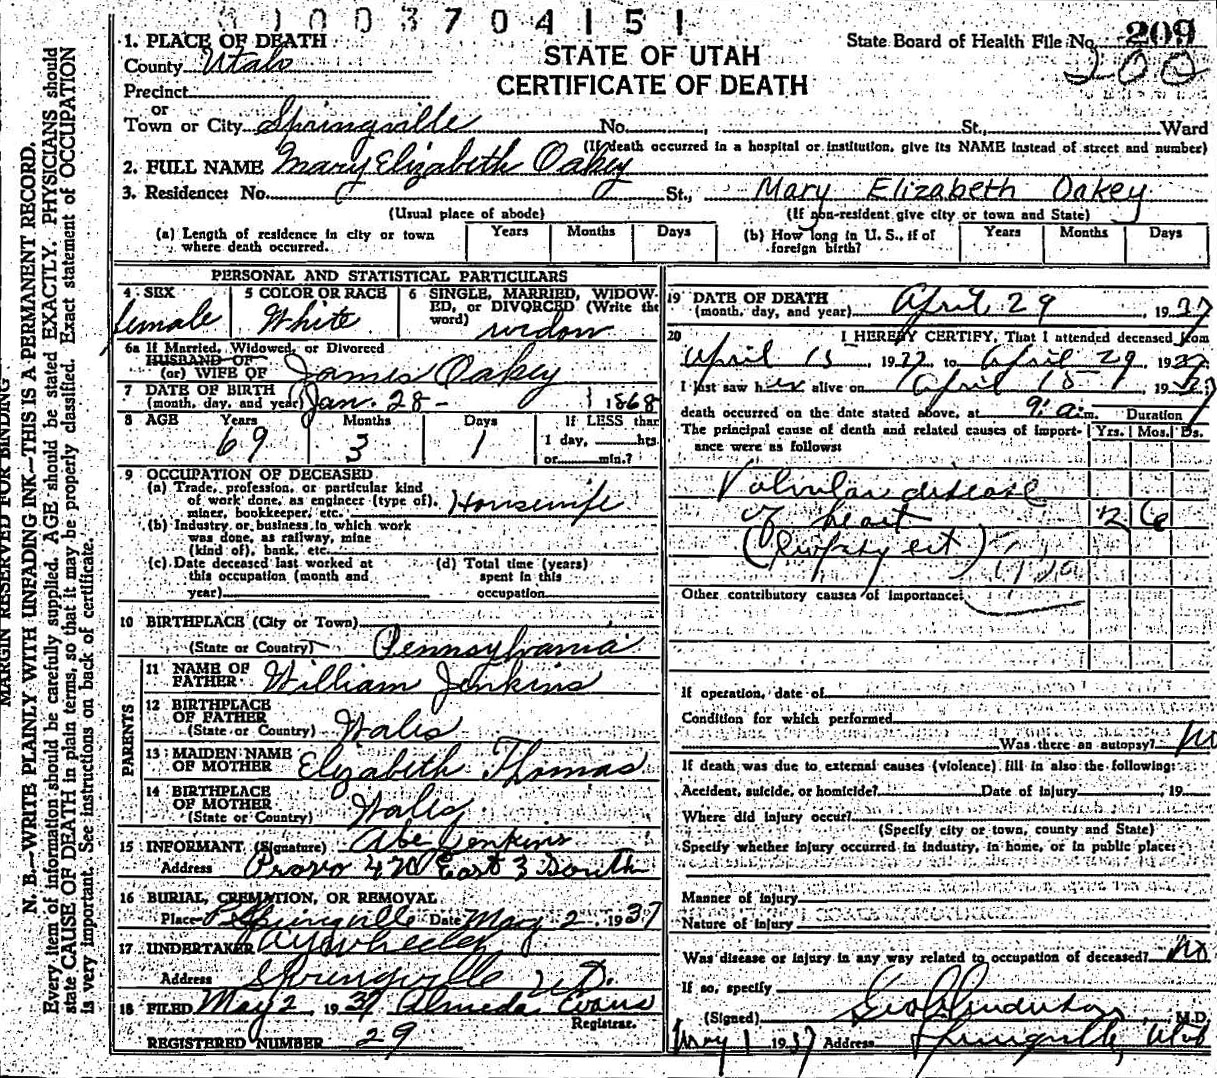 3700 4151
STATE OF UTAH
CERTIFICATE OF DEATH
State Board of Health File No. 209
200
1. PLACE OF DEATH
County Utah
Precinct
or
Town or City Springville No. , St., Ward
(If death occurred in a hospital or institution, give its NAME instead of street and number)
2. FULL NAME Mary Elizabeth Oakey
3. Residence: No. St., Mary Elizabeth Oakey
(Usual place of abode) (If non-resident give city or town and State)
(a) Length of residence in city or town where death occurred. Years Months Days
(b) How long in U. S., if of foreign birth? Years Months Days
PERSONAL AND STATISTICAL PARTICULARS
4 SEX
female
5 COLOR OR RACE
White
6 SINGLE, MARRIED, WIDOW-
ED, or DIVORCED (Write the
word) widow
6a If Married, Widowed, or Divorced
HUSBAND OF
(or) WIFE OF James Oakey
7 DATE OF BIRTH
(month, day, and year) Jan. 28 - 1868
8 AGE Years Months Days If LESS than
69 3 1 1 day, hrs.
or min.?
9 OCCUPATION OF DECEASED
(a) Trade, profession, or particular kind
of work done, as engineer (type of), Housewife
miner, bookkeeper, etc.
(b) Industry or business in which work
was done, as railway, mine
(kind of), bank, etc.
(c) Date deceased last worked at
this occupation (month and
year)
(d) Total time (years)
spent in this
occupation
10 BIRTHPLACE (City or Town)
(State or Country) Pennsylvania
PARENTS
11 NAME OF
FATHER William Jenkins
12 BIRTHPLACE
OF FATHER
(State or Country) Wales
13 MAIDEN NAME
OF MOTHER Elizabeth Thomas
14 BIRTHPLACE
OF MOTHER
(State or Country) Wales
15 INFORMANT (Signature) Abe Jenkins
Address Provo 420 East 3 South
16 BURIAL, CREMATION, OR REMOVAL
Place Springville Date May 2, 1937
17 UNDERTAKER A Y Wheeler
Address Springville
18 FILED May 2 1937 Almeda Evans
Registrar.
REGISTERED NUMBER 29
19 DATE OF DEATH
(month, day, and year) April 29, 1937
20 I HEREBY CERTIFY, That I attended deceased from
April 15 1937 to April 29 1937
I last saw her alive on April 18 1937
death occurred on the date stated above, at 9: a.m. Duration
The principal cause of death and related causes of import- Yrs. Mos. Ds.
ance were as follows:
Valvular disease
of heart 2 6
Other contributory causes of importance:
If operation, date of
Condition for which performed
Was there an autopsy? no
If death was due to external causes (violence) fill in also the following:
Accident, suicide, or homicide? Date of injury 19
Where did injury occur?
(Specify city or town, county and State)
Specify whether injury occurred in industry, in home, or in public place:
Manner of injury
Nature of injury
Was disease or injury in any way related to occupation of deceased? no
If so, specify
(Signed) Geo Anderson, M.D.
May 1 1937 Address Springville, Utah
MARGIN RESERVED FOR BINDING
N. B.—WRITE PLAINLY WITH UNFADING INK—THIS IS A PERMANENT RECORD.
Every item of information should be carefully supplied. AGE should be stated EXACTLY. PHYSICIANS should
state CAUSE OF DEATH in plain terms, so that it may be properly classified. Exact statement of OCCUPATION
is very important. See instructions on back of certificate.